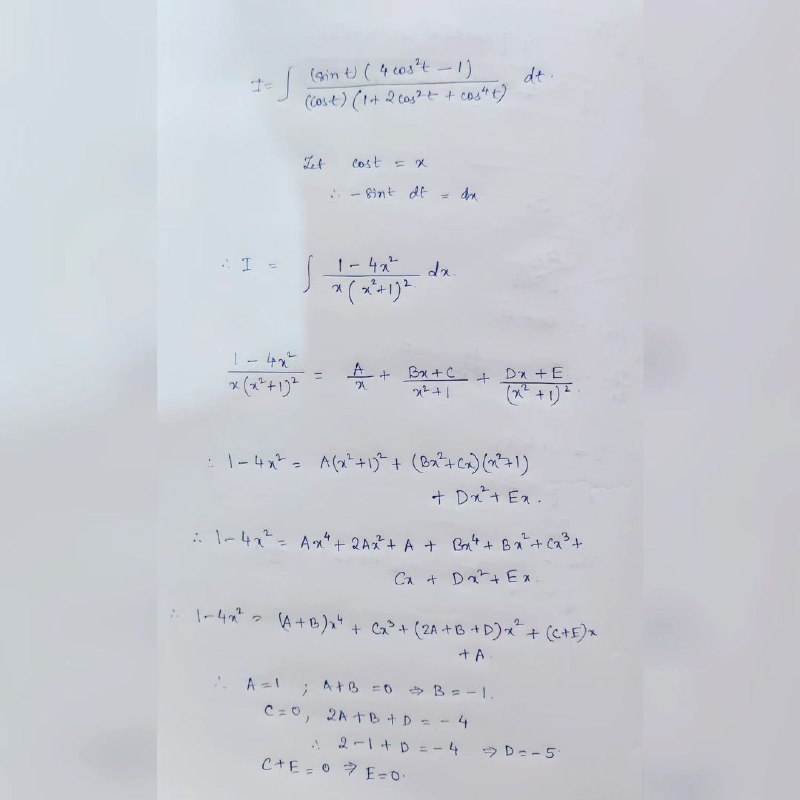 I = ∫ (sin t) (4 cos²t − 1) / (cos t) (1 + 2 cos²t + cos⁴t) dt.
Let cos t = x
∴ − sin t dt = dx
∴ I = ∫ 1 − 4x² / x(x²+1)² dx.
1 − 4x² / x(x²+1)² = A/x + Bx + C / x²+1 + Dx + E / (x²+1)².
∴ 1−4x² = A(x²+1)² + (Bx²+Cx)(x²+1)
+ Dx² + Ex.
∴ 1−4x² = Ax⁴ + 2Ax² + A + Bx⁴ + Bx² + Cx³ +
Cx + Dx² + Ex.
∴ 1−4x² = (A+B)x⁴ + Cx³ + (2A+B+D)x² + (C+E)x
+ A.
∴ A=1 ; A+B = 0 ⇒ B = −1.
C=0, 2A+B+D = −4
∴ 2−1+D = −4 ⇒ D=−5.
C+E=0 ⇒ E=0.